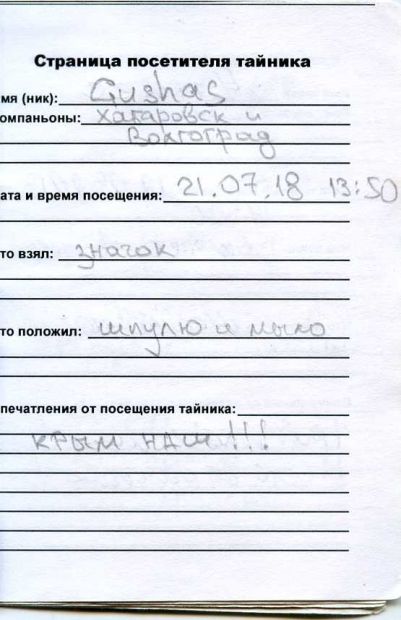 Страница посетителя тайника
мя (ник): Gushas
омпаньоны: Хатаровск и
Волгоград
ата и время посещения: 21.07.18 13:50
то взял: значок
то положил: шпулю и мыло
печатления от посещения тайника:
КРЫМ НАШ!!!